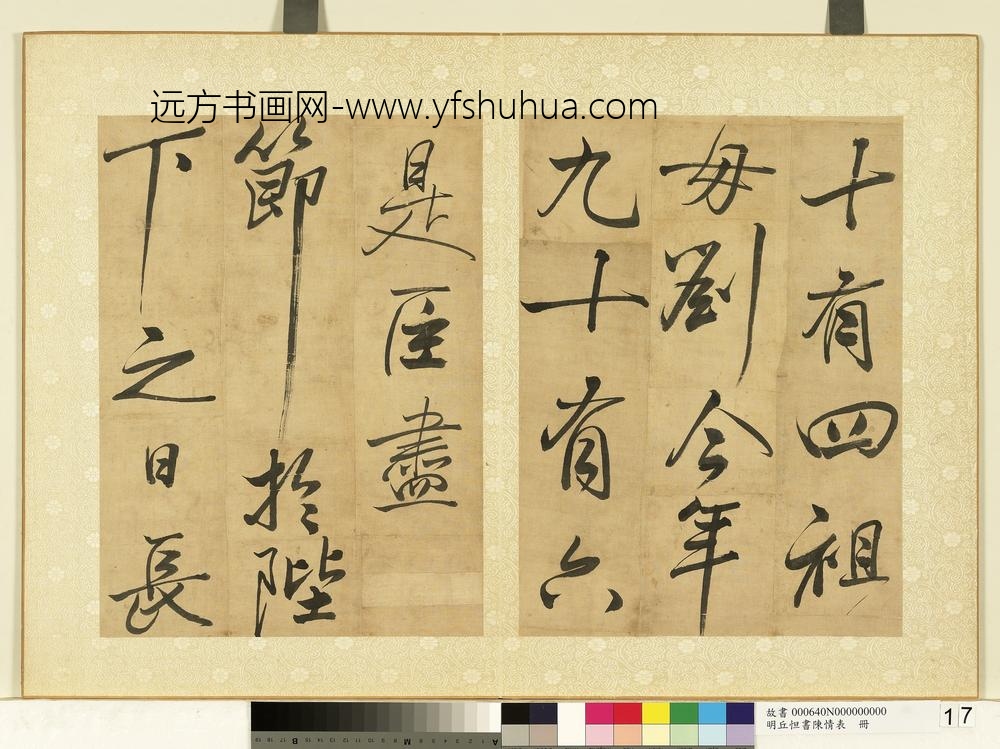 远方书画网-www.yfshuhua.com
十有四祖
母劉今年
九十有六
是臣盡
節於陛
下之日長
故書 000640N000000000
明丘恒書陳情表 冊
17